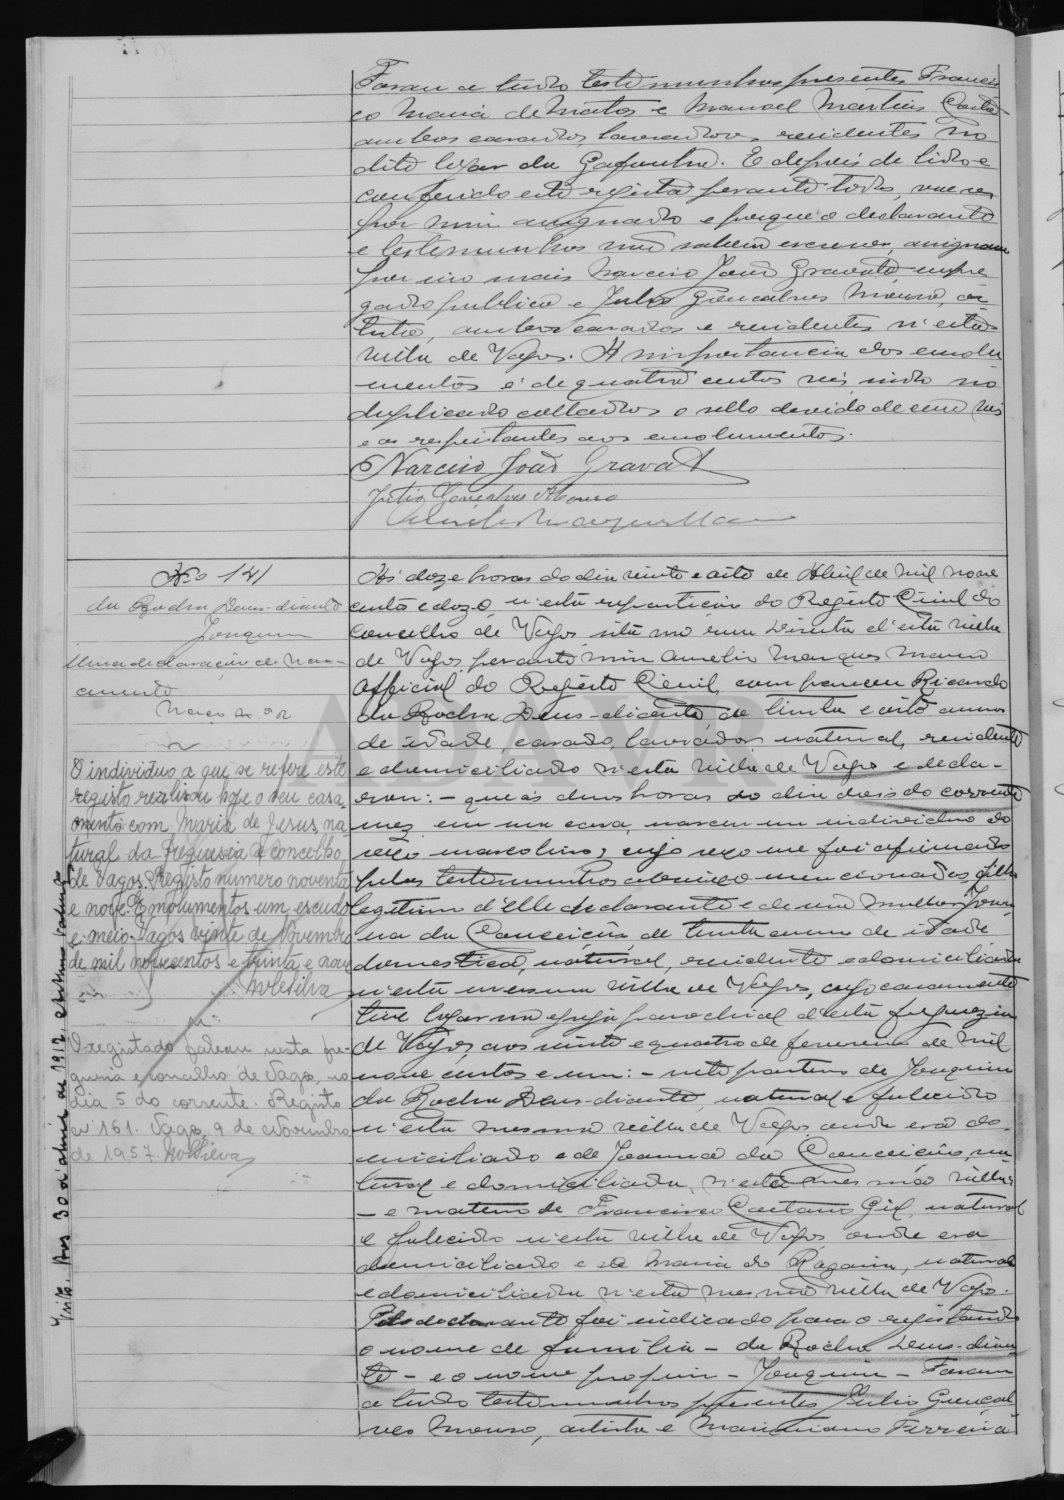 Foram a tudo testemunhas presentes Francis
co Maria de Matos e Manoel Martins
ambos casados, lavradores, residentes no
dito logar da Gafanha. E depois de lido e
conferido este registo perante todos, vae ser
por mim assignado e porque o declarante
e testemunhas não sabem escrever, assignam
por isso mais Narciso João Gravato, empre
gado publico e Julio Gonçalves Mouro, ar
tista, ambos casados e residentes n'esta
villa de Vagos. A importancia dos emolu
mentos é de quatro centos reis indo no
duplicado collados o sello devido de cem reis
e os respeitantes aos emolumentos.
Narciso João Gravato
Julio Gonçalves Mouro
No 121
da Rocha Deus-diante
Joaquim
Uma declaração de nas-
cimento
O individuo a que se refere este
registo realisou hoje o seu casa-
mento com Maria de Jesus, na-
tural da freguesia e concelho
de Vagos. Registo numero noventa
e nove. Emolumentos um escudo
e meio. Vagos vinte de Novembro
de mil novecentos e trinta e nove
O registado faleceu nesta fre-
guesia e concelho de Vagos, no
dia 5 do corrente. Registo
nº 161. Vagos, 9 de Novembro
de 1957.
Aos 30 d'abril de 1912
Ás doze horas do dia vinte e oito de Abril de mil nove
centos e doze, n'esta repartição do Registo Civil do
concelho de Vagos sita na rua Direita d'esta villa
de Vagos, perante mim Aurelio Marques Mano
official do Registo Civil, compareceu Ricardo
da Rocha Deus-diante, de trinta e oito annos
de idade, casado, lavrador, natural, residente
e domiciliado n'esta villa de Vagos e decla-
rou: - que ás duas horas do dia dois do corrente
mez em sua casa, nasceu um individuo do
sexo masculino, cujo sexo me foi afirmado
pelas testemunhas abaixo mencionadas, filho
legitimo d'elle declarante e de sua mulher Joan
na da Conceição, de trinta annos de idade
domestica, natural, residente e domiciliada
n'esta mesma villa de Vagos, cujo casamento
teve logar na egreja parochial d'esta freguezia
de Vagos, aos vinte e quatro de fevereiro de mil
nove centos e um: - neto paterno de Joaquim
da Rocha Deus-diante, natural e fallecido
n'esta mesma villa de Vagos onde era do-
miciliado e de Joanna da Conceição, na
tural e domiciliada, n'esta mesma villa
- e materno de Francisco Caetano Gil, natural
e fallecido n'esta villa de Vagos onde era
domiciliado e de Maria do Rozario, natural
e domiciliada n'esta mesma villa de Vagos.
Pelo declarante foi indicado para o registando
o nome de familia - da Rocha Deus-dian
te - e o nome proprio - Joaquim - Foram
a tudo testemunhas presentes Julio Gonçal
ves Mouro, artista e Maximiano Ferreira
ADAVR